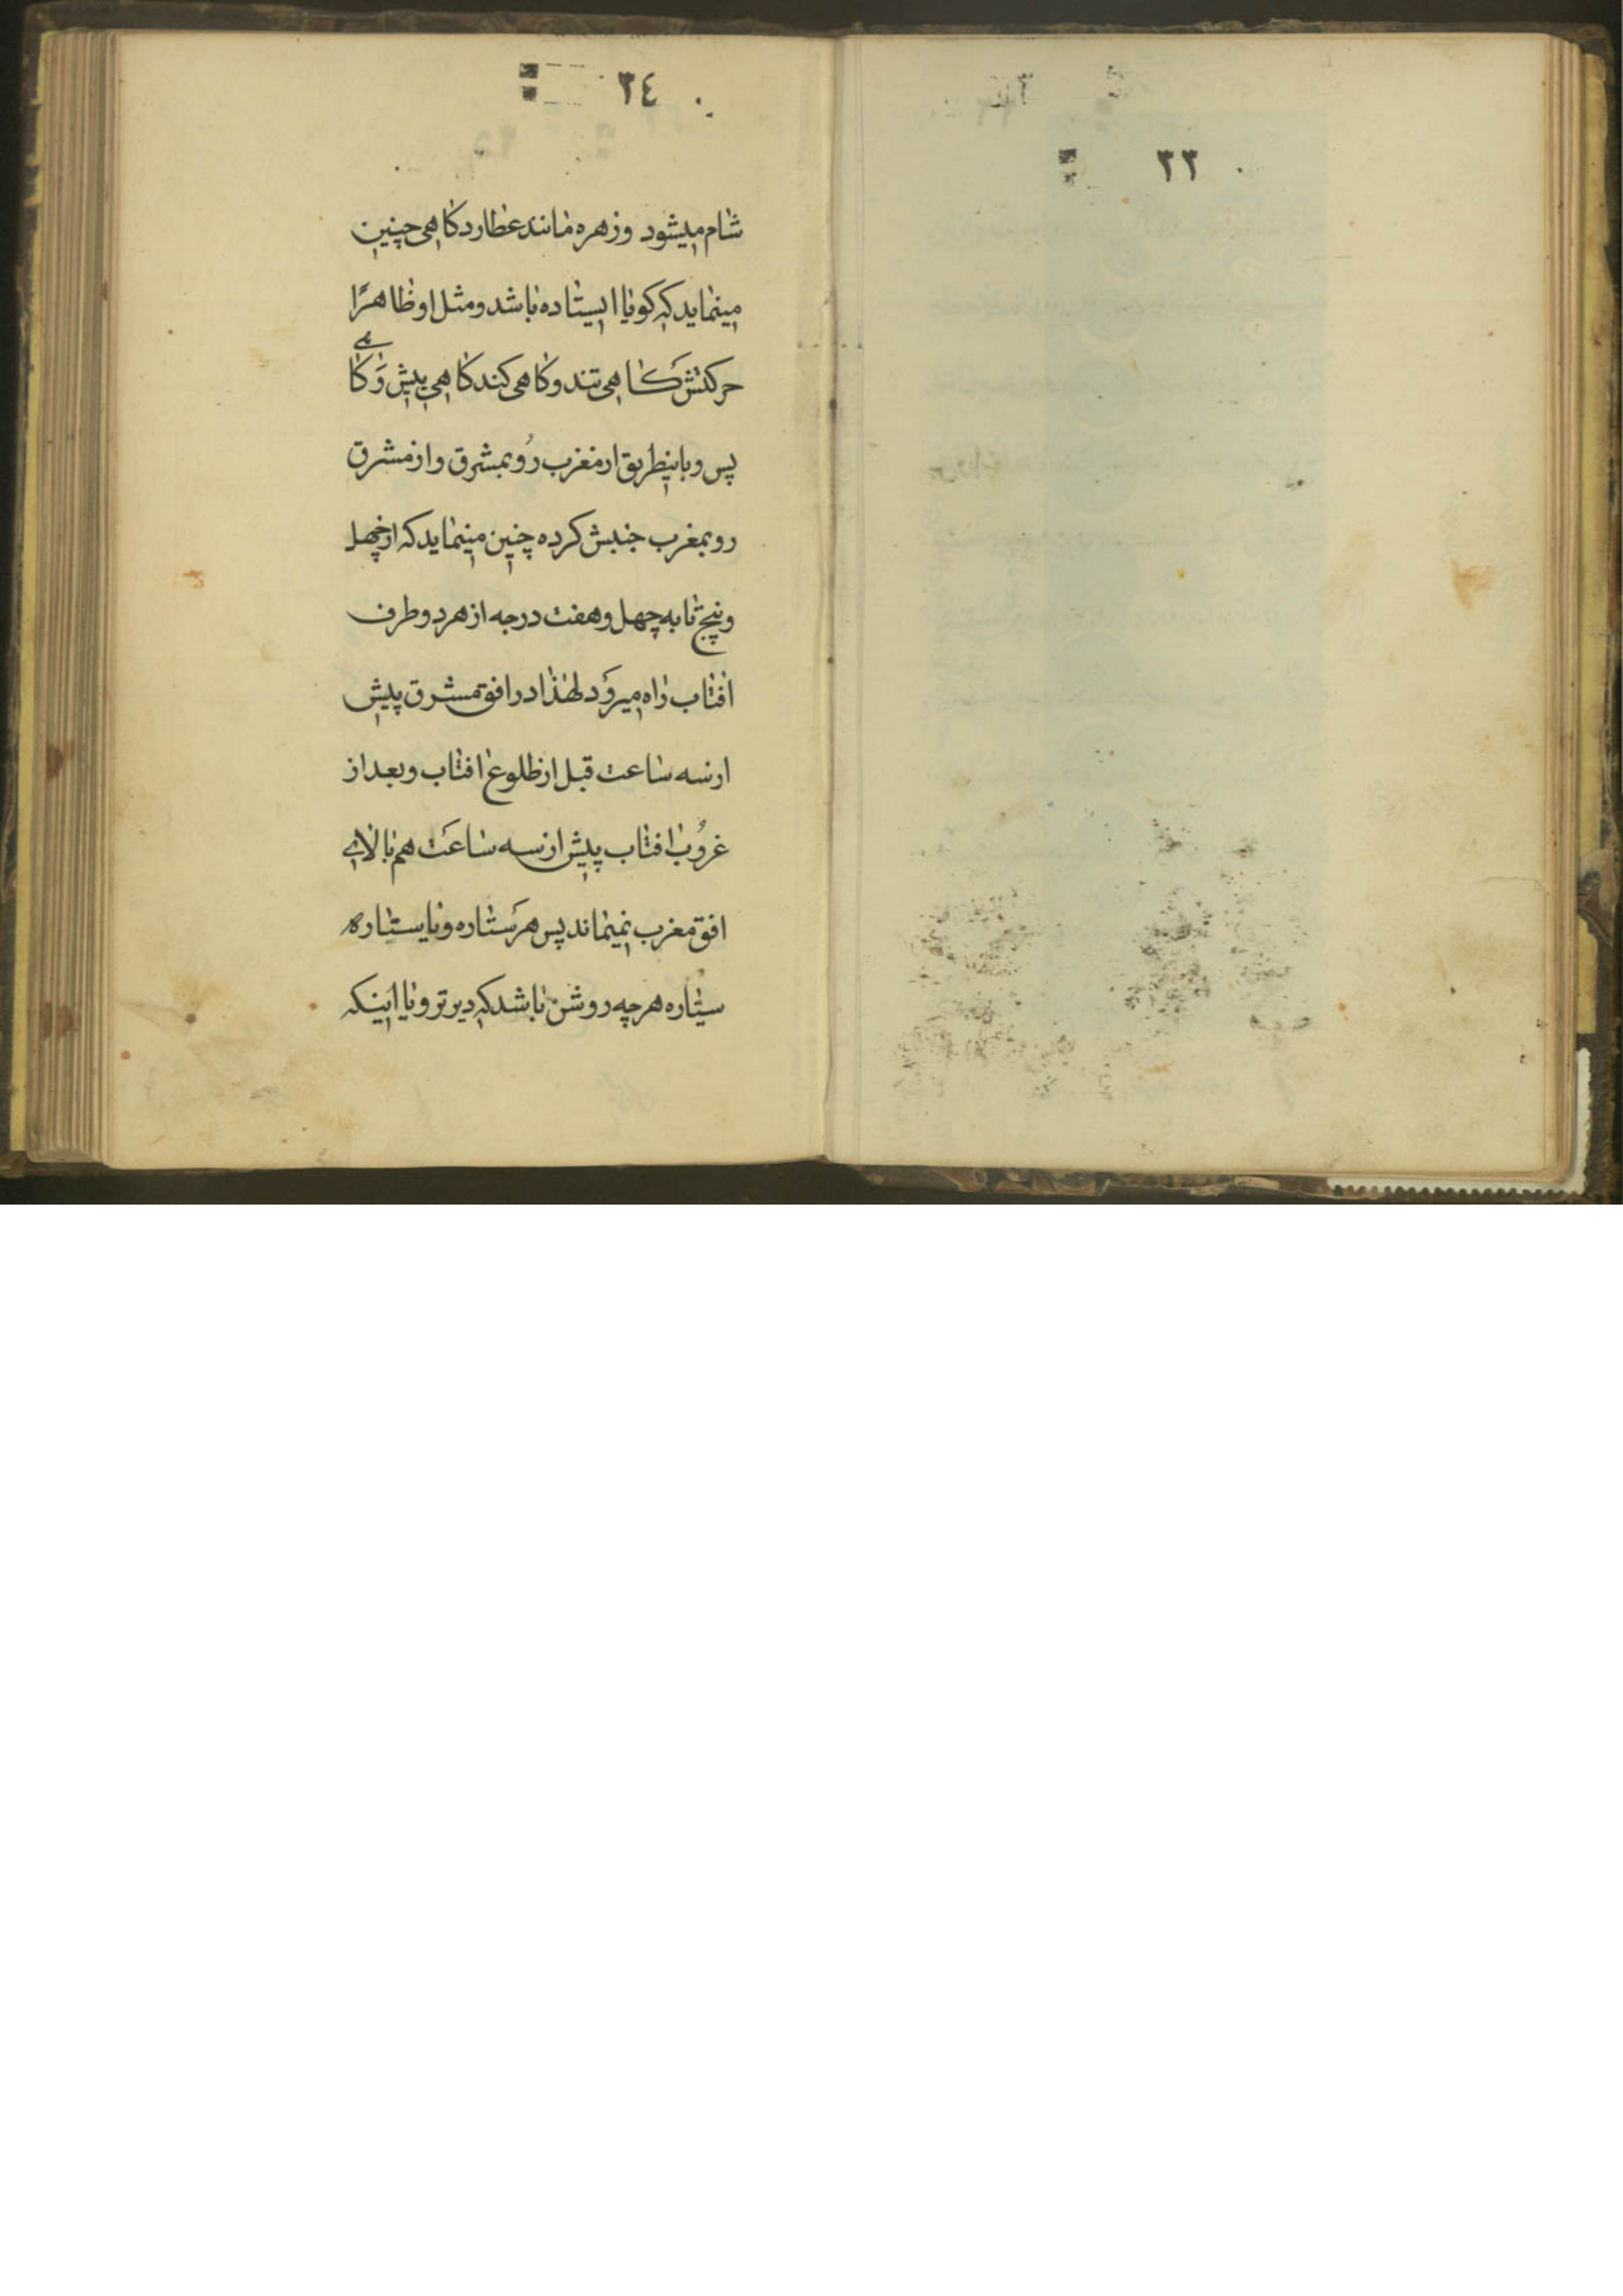 ۳۳
۳٤
شام میشود وزهره مانند عطارد کاهی چنین
مینماید که کویا ایستاده باشد ومثل او ظاهرًا
حرکتش کاهی تند وکاهی کند کاهی پیش وَکاهے
پس وباینطریق از مغرب رُو بمشرق واز مشرق
رو بمغرب جنبش کرده چنین مینماید که از چهل
وپنج تا به چهل وهفت درجه از هر دو طرف
افتاب راه میروَد لهذا در افق مشرق پیش
از سه ساعت قبل از طلوع افتاب وبعد از
غروُب افتاب پیش از سه ساعَت هم بالای
افق مغرب نمیماند پس هر سَتاره ویا سیتاره
سیتاره هرچه روشن باشد که دیرتر ویا اینکه